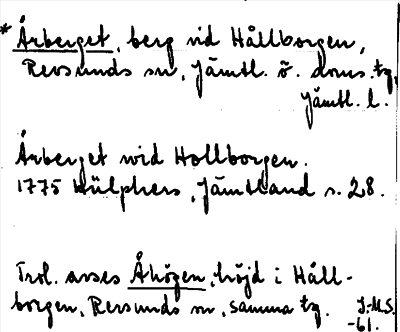 * Årberget, berg vid Hållborgen,
Revsunds sn, Jämtl. ö. doms. tg,
Jämtl. l.
Årberget wid Hollborgen.
1775 Hülphers, Jämtland s. 28.
Trol. avses Åhögen, höjd i Håll-
borgen, Revsunds sn, samma tg. J.-M.S.
-61.